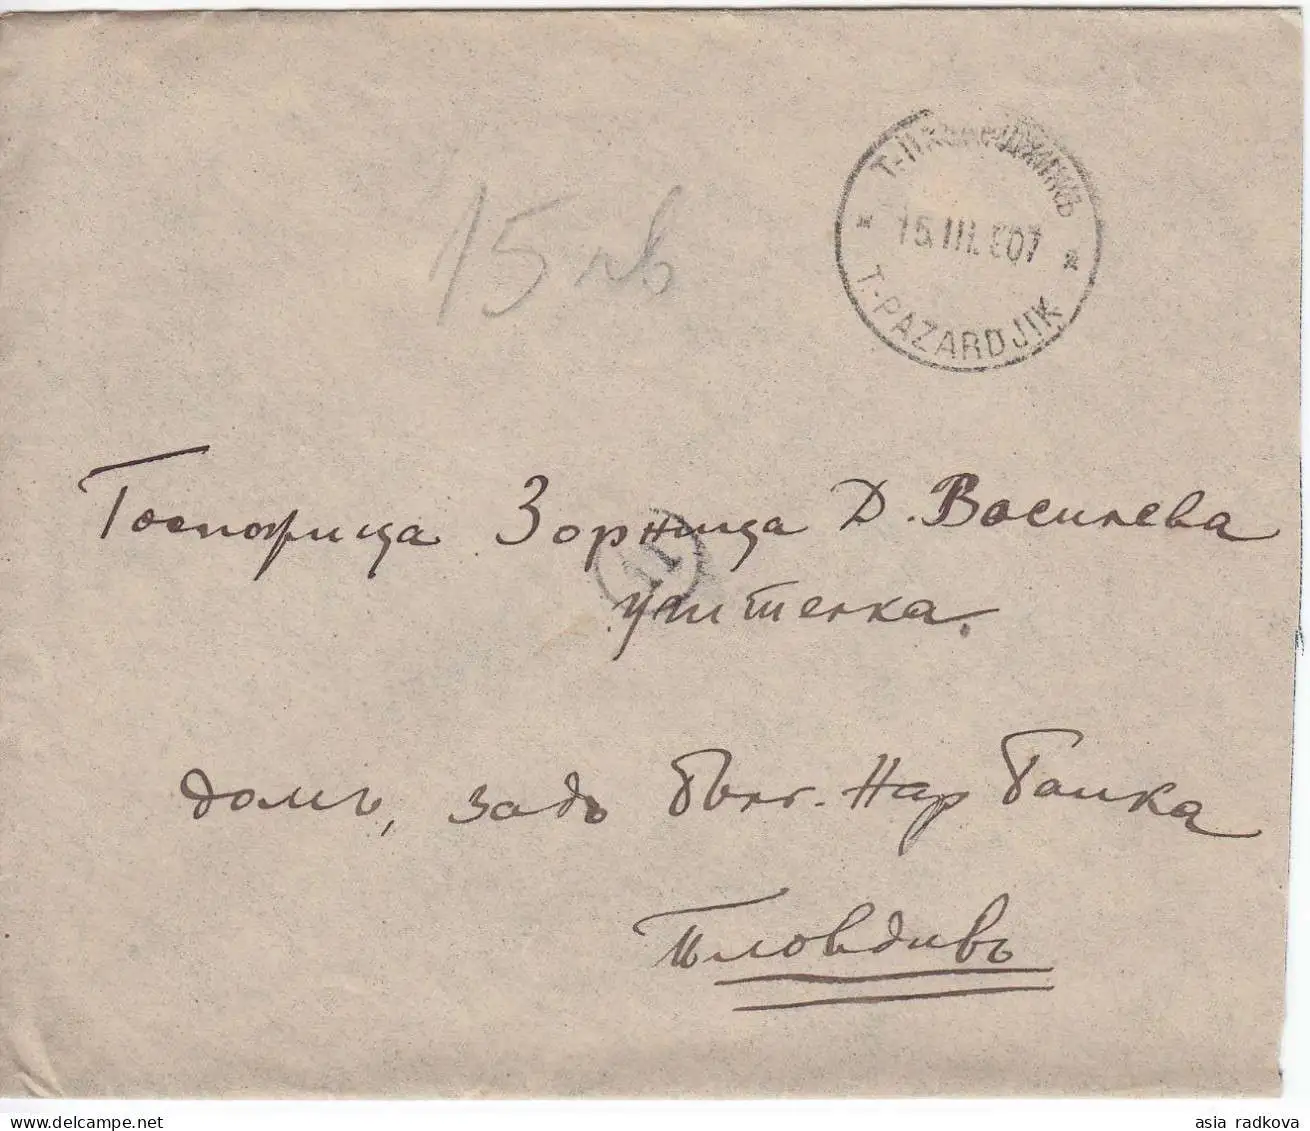 Т.-ПАЗАРДЖИКЪ
15.III.907
T.-PAZARDJIK
15 лв
Госпожица Зорница Д. Василева
11
учителка.
домъ, задъ Бълг. Нар Банка
Пловдивъ
asia radkova